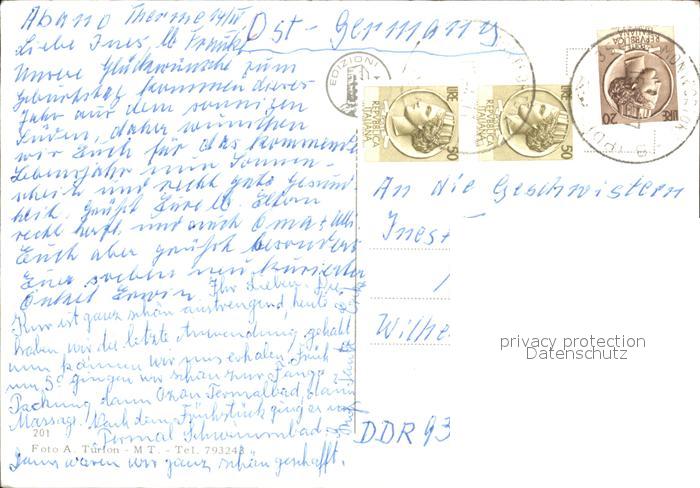 Abano Therme 14/IV
Ost-Germany
Liebe Ines lb Frauke
Unsere Glückwünsche zum
Geburtstag kommen dieses
Jahr aus dem sonnigen
Süden, daher wünschen
wir Euch für das kommende
Lebensjahr nur Sonnen-
schein und recht gute Gesund-
heit. Grüßt Eure lb. Eltern
recht herzl. und auch Oma +
Euch aber grüßt besonders
Euer soeben neu kurierter
Onkel Erwin
Ihr Lieben. Die
Kur ist ganz schön anstrengend, heute
haben wir die letzte Anwendung gehabt
nun können wir uns erholen. Früh
um 5° gingen wir schon zur Fango
Packung dann Ozon Termalbad, dann
Massage. Nach dem Frühstück ging es ins
Termal Schwimmbad.
Dann waren wir ganz schön geschafft.
201
Foto A. Turlon - MT. - Tel. 793243
EDIZIONI
LIRE 50
REPUBBLICA ITALIANA
LIRE 50
REPUBBLICA ITALIANA
LIRE 20
REPUBBLICA ITALIANA
An die Geschwistern
Ines +
Wilhe
DDR 93
privacy protection
Datenschutz